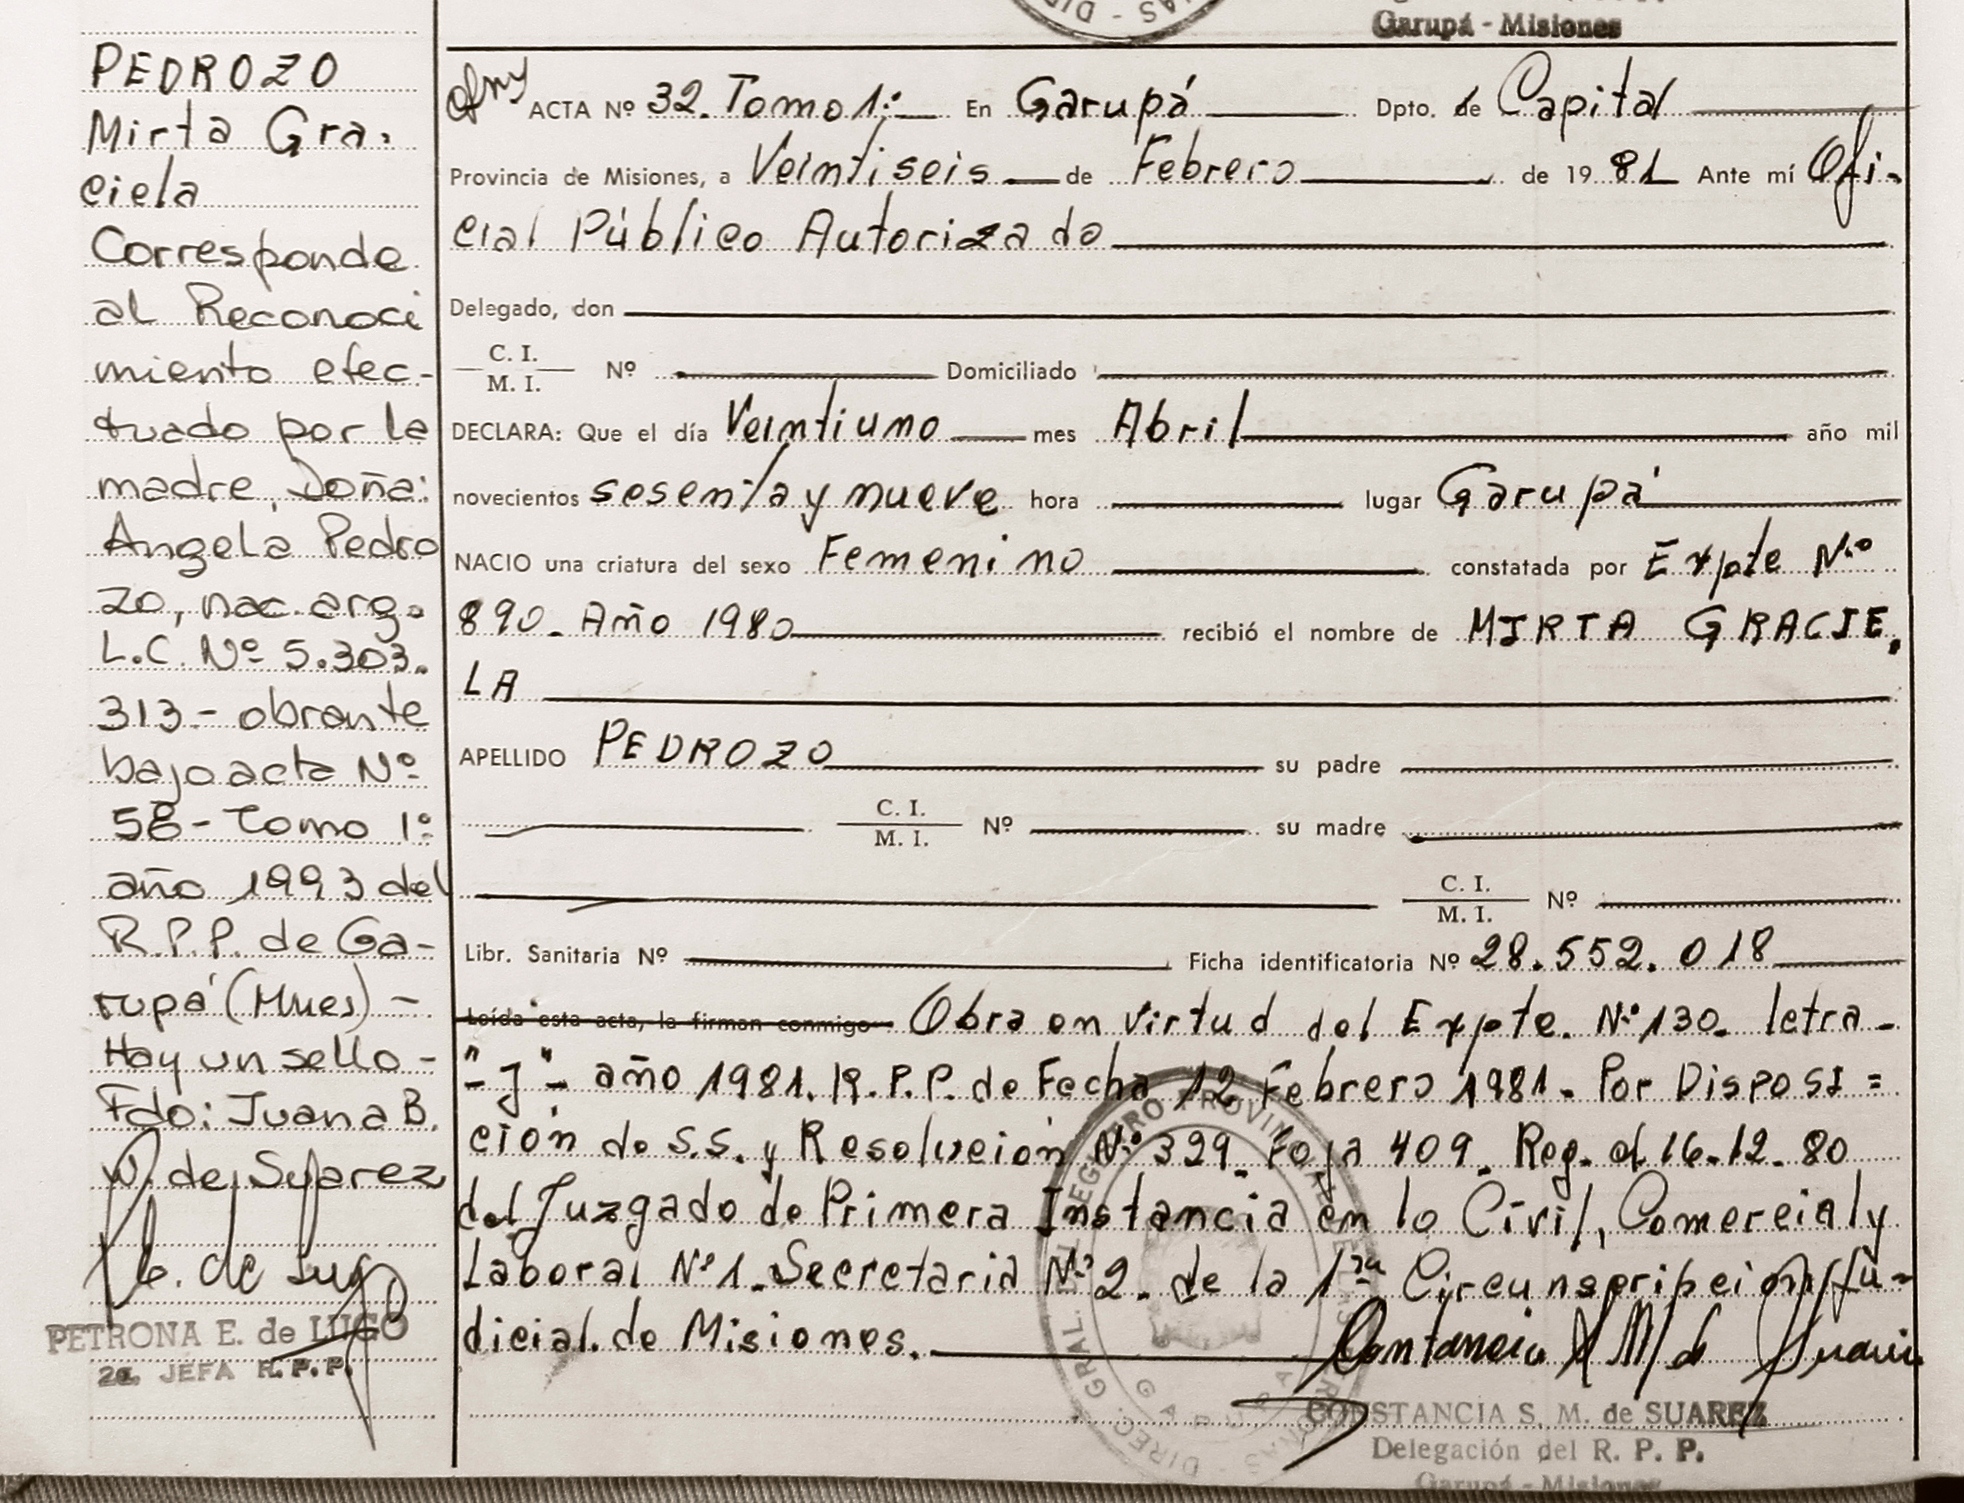 Garupá - Misiones
PEDROZO
Mirta Gra-
ciela
Corresponde
al Reconoci
miento efec-
tuado por la
madre, Doña:
Angela Pedro
zo, nac. arg.
L.C. Nº 5.303.
313 - obrante
bajo acta Nº
58 - Tomo 1º
año 1993 del
R.P.P. de Ga-
rupá (Mnes) -
Hay un sello -
Fdo: Juana B.
V. de Suarez
PETRONA E. de LUGO
2a. JEFA R. P. P.
ACTA Nº 32. Tomo 1º En Garupá Dpto. de Capital
Provincia de Misiones, a Veintiseis de Febrero de 1981 Ante mí Ofi-
cial Público Autorizado
Delegado, don
C. I.
M. I. Nº Domiciliado
DECLARA: Que el día Veintiuno mes Abril año mil
novecientos sesenta y nueve hora lugar Garupá
NACIO una criatura del sexo Femenino constatada por Expte Nº
890. Año 1980 recibió el nombre de MIRTA GRACIE.
LA
APELLIDO PEDROZO su padre
C. I.
M. I. Nº su madre
C. I.
M. I. Nº
Libr. Sanitaria Nº Ficha identificatoria Nº 28.552.018
Leída esta acta, la firman conmigo Obra en virtud del Expte. Nº 130. letra -
"J" - año 1981. R.P.P. de Fecha 12 Febrero 1981. Por Disposi=
ción de S.S. y Resolución Nº 329. Foja 409. Reg. el 16-12-80
del Juzgado de Primera Instancia en lo Civil, Comercial y
Laboral Nº 1. Secretaria Nº 2. de la 1ra Circunscripción Ju-
dicial. de Misiones.
CONSTANCIA S. M. de SUAREZ
Delegación del R. P. P.
Garupá - Misiones